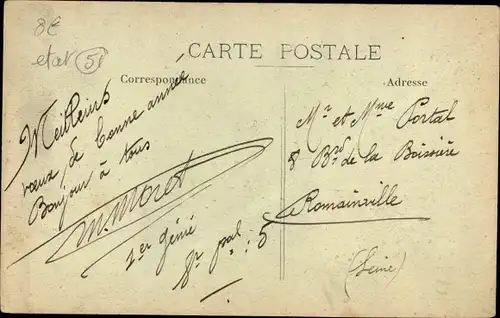 8€
etat 51
CARTE POSTALE
Correspondance
Adresse
Meilleurs
vœux de bonne année
Bonjour à tous
M. Moret
1er Génie
Mr et Mme Portal
8 Brd de la Boissière
Romainville
(Seine)